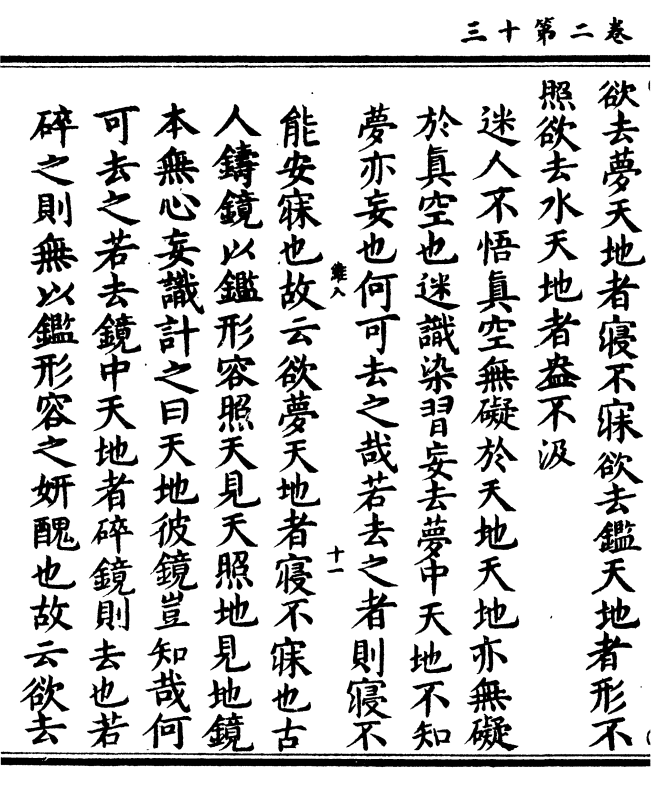 三十第二卷
欲去夢天地者寢不寐欲去鑑天地者形不
照欲去水天地者盎不汲
迷人不悟眞空無礙於天地天地亦無礙
於眞空也迷識染習妄去夢中天地不知
夢亦妄也何可去之哉若去之者則寢不
難八
十一
能安寐也故云欲夢天地者寢不寐也古
人鑄鏡以鑑形容照天見天照地見地鏡
本無心妄識計之曰天地彼鏡豈知哉何
可去之若去鏡中天地者碎鏡則去也若
碎之則無以鑑形容之妍醜也故云欲去